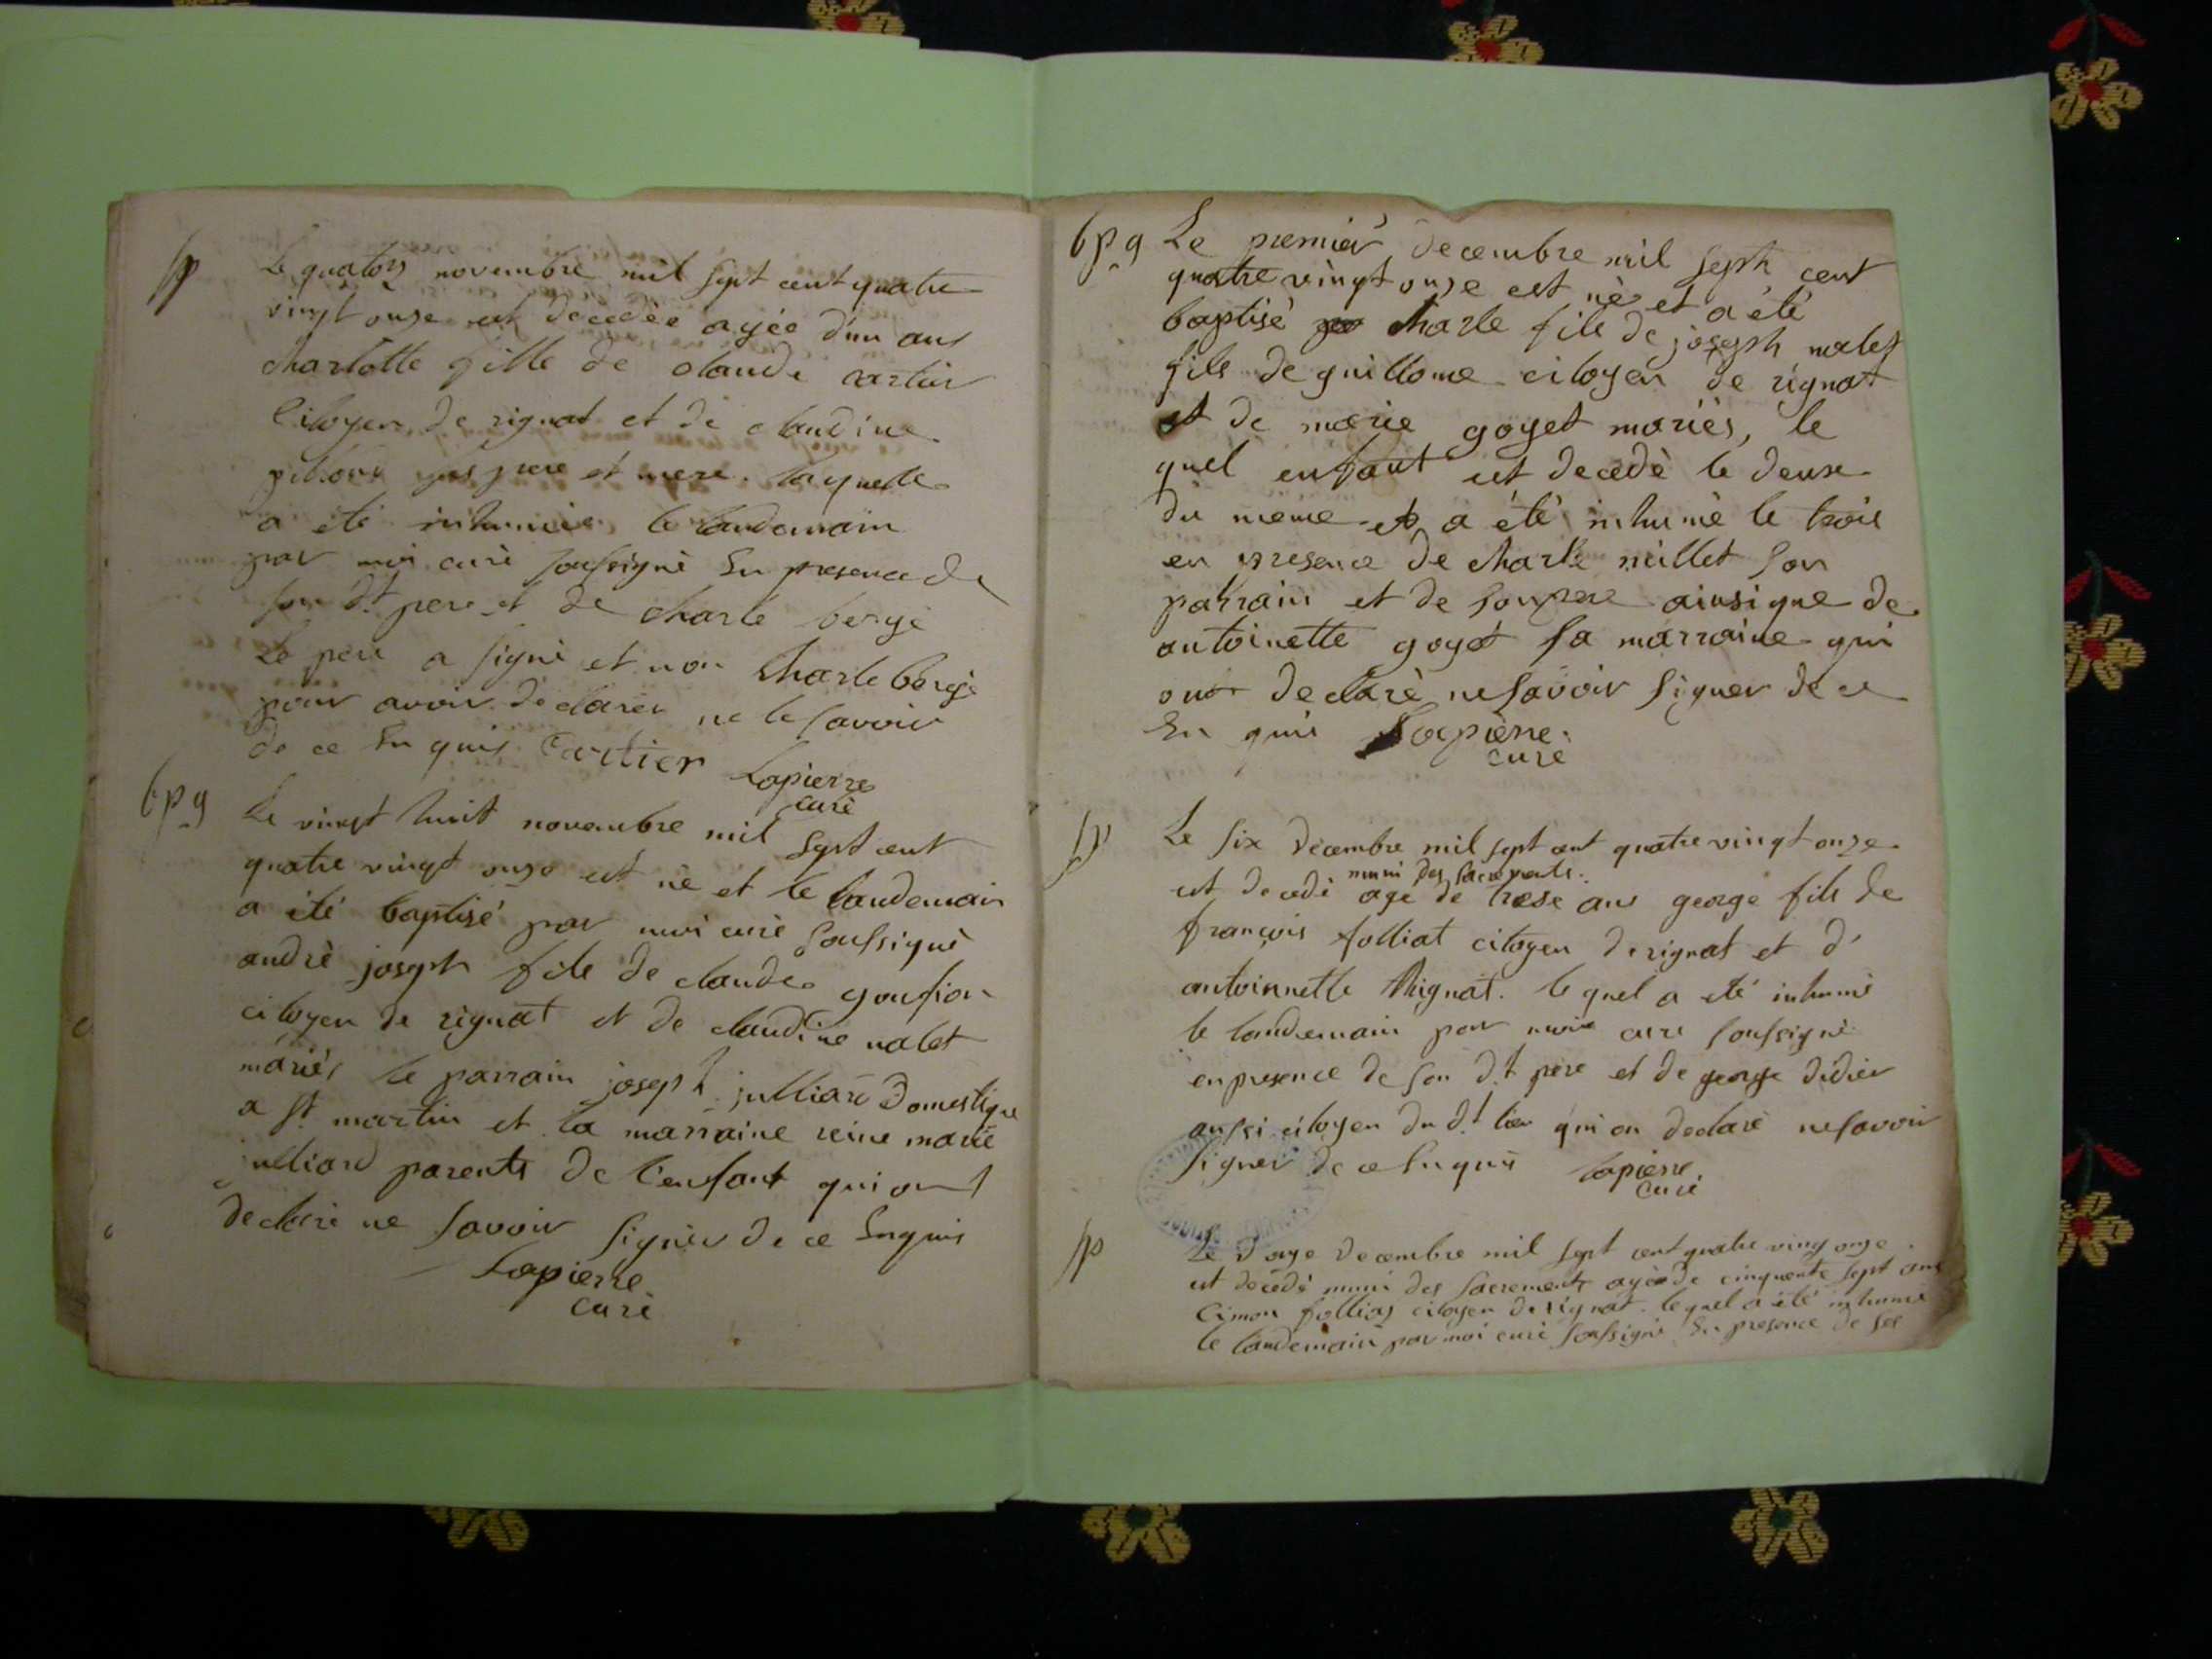 sp
Le quatorz novembre mil sept cent quatre
vingt onze est décedée agée d'un ans
charlotte fille de claude cartier
Citoyen de rignat et de claudine
ses pere et mere. laquelle
a été inhumée le landemain
par moi curé soussigné En presence de
son d.t pere et de charle bergé
Le pere a signé et non Charle bergé
pour avoir déclarer ne le savoir
de ce En quis Cartier Lapierre
curé
bp.g
Le vingt huit novembre mil sept cent
quatre vingt onze est né et le landemain
a été baptisé par moi curé soussigné
andré joseph fils de claude goufion
citoyen de rignat et de claudine nalet
mariés le parrain joseph julliard domestique
a St martin et la marraine reine marie
julliard parents de l'enfant qui ont
declaré ne savoir signer de ce Enquis
Lapierre
curé
bp.g
Le premier decembre mil sept cent
quatre vingt onze est né et a été
baptisé charle fils de joseph nalet
fils de guillome citoyen de rignat
et de marie goyet mariés, le
quel enfant est decedé le deux
du même et a été inhumé le trois
en presence de charle millet son
parrain et de son pere ainsi que de
antoinette goyet sa marraine qui
ont declaré ne savoir signer de ce
En quis Lapierre
curé
sp
Le six decembre mil sept cent quatre vingt onze
muni des sacrements.
est decedé agé de trese ans george fils de
françois folliat citoyen de rignat et d'
antoinnette Mignat. le quel a été inhumé
le landemain par moi curé soussigné
en presence de son d.t père et de george didier
aussi citoyen du d.t lieu qui on declaré ne savoir
signer de ce Enquis lapierre
curé
sp
Le doze decembre mil sept cent quatre ving onze
est decedé muni des sacrements agé de cinquante sept ans
Cimon follias citoyen de rignat. le quel a été inhumé
le landemain par moi curé soussigné En presence de ses